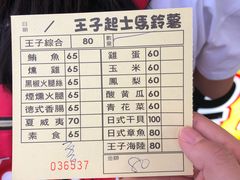 王子起士馬鈴薯
王子綜合 80 數量
鮪魚 65 雞蛋 60
燻雞 65 玉米 60
黑椒火腿絲 65 鳳梨 60
煙燻火腿絲 65 酸黃瓜 60
德式香腸 65 青花菜 60
夏威夷 70 日式干貝 100
素食 65 日式章魚 80
王子海陸 80
036537 總額 80